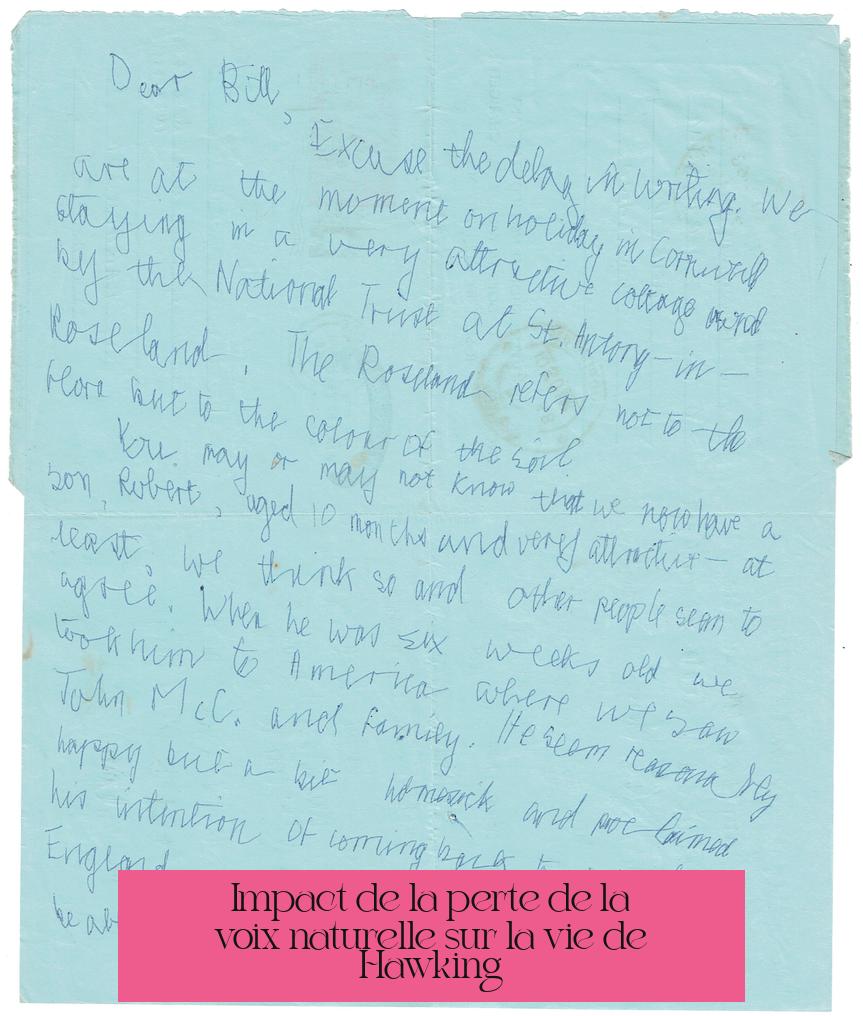 Dear Bill,
Excuse the delay in writing. We
are at the moment on holiday in Cornwall
staying in a very attractive cottage
by the National Trust at St. Antony-in-
Roseland. The Roseland refers not to the
flora but to the colour of the soil
You may or may not know that we now have a
son, Robert, aged 10 months and very attractive - at
least, we think so and other people seem to
agree. When he was six weeks old we
took him to America where we saw
John McC. and family. He seem reasonably
happy but a bit homesick and
his intention of coming back
England
be ab
Impact de la perte de la
voix naturelle sur la vie de
Hawking